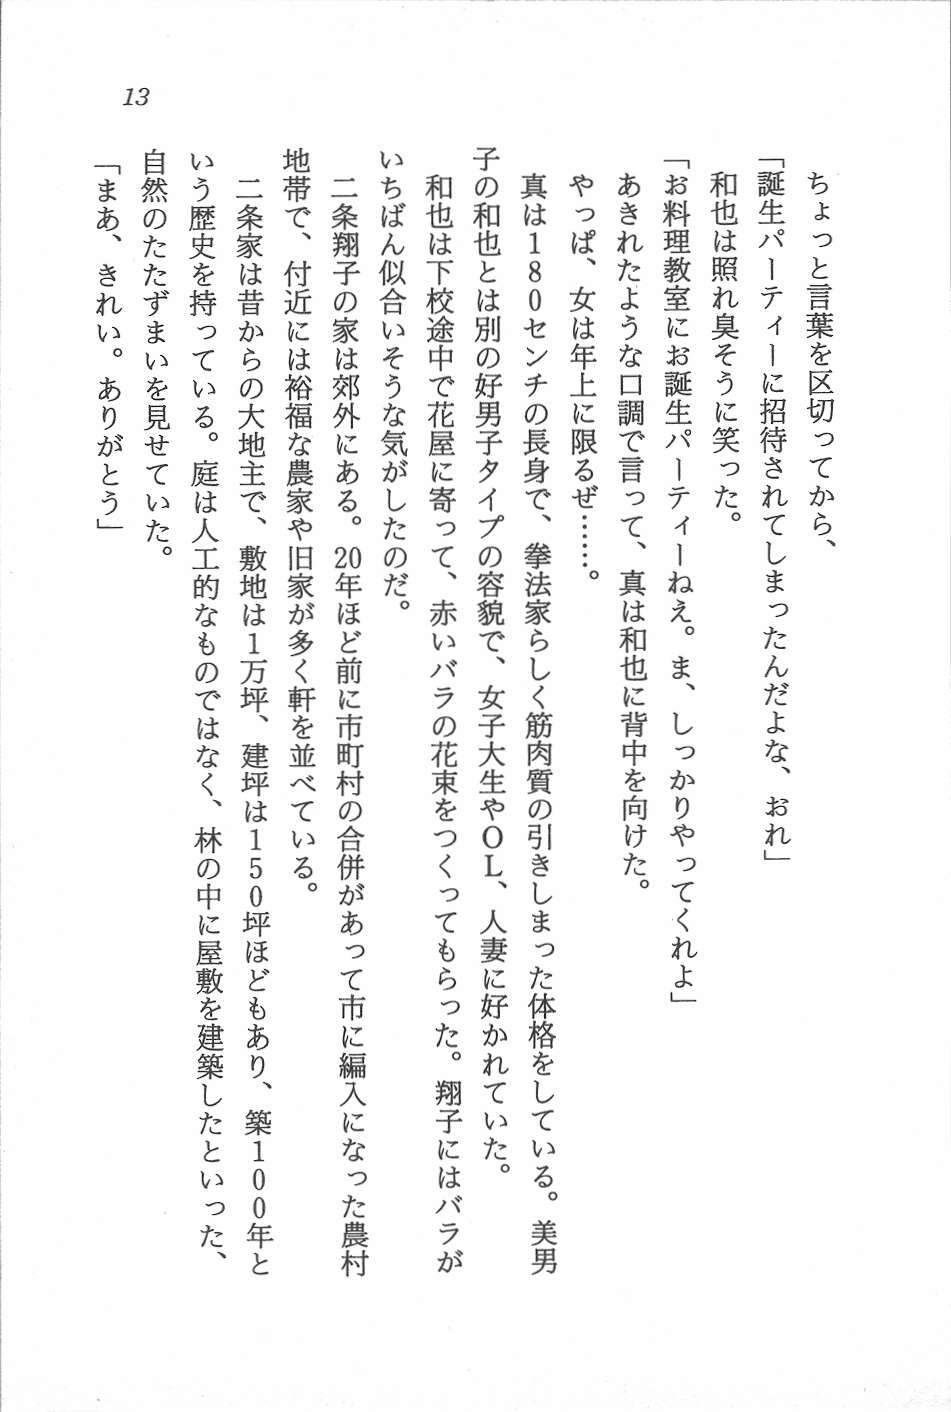 13
ちょっと言葉を区切ってから、
「誕生パーティーに招待されてしまったんだよな、おれ」
和也は照れ臭そうに笑った。
「お料理教室にお誕生パーティーねえ。ま、しっかりやってくれよ」
あきれたような口調で言って、真は和也に背中を向けた。
やっぱ、女は年上に限るぜ……。
真は180センチの長身で、拳法家らしく筋肉質の引きしまった体格をしている。美男
子の和也とは別の好男子タイプの容貌で、女子大生やOL、人妻に好かれていた。
和也は下校途中で花屋に寄って、赤いバラの花束をつくってもらった。翔子にはバラが
いちばん似合いそうな気がしたのだ。
二条翔子の家は郊外にある。20年ほど前に市町村の合併があって市に編入になった農村
地帯で、付近には裕福な農家や旧家が多く軒を並べている。
二条家は昔からの大地主で、敷地は1万坪、建坪は150坪ほどもあり、築100年と
いう歴史を持っている。庭は人工的なものではなく、林の中に屋敷を建築したといった、
自然のたたずまいを見せていた。
「まあ、きれい。ありがとう」